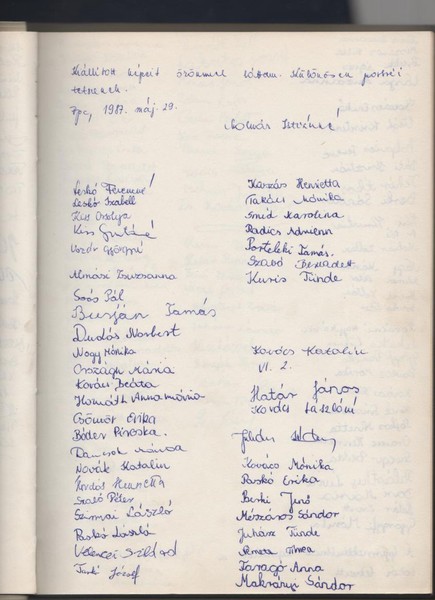 Kiállított képeit örömmel láttam. Különösen portréi
tetszenek.
1987. máj. 29.
Molnár Istvánné
Leskó Ferencné
Leskó Izabell
Kiss Orsolya
Kiss
Almási Zsuzsanna
Soós Pál
Burján Tamás
Dudás Norbert
Nagy Mónika
Országh Mária
Kovács Beáta
Horváth Annamária
Csömör Erika
Bóder Piroska
Dancsok Mária
Novák Katalin
Kordás Henrietta
Szabó Péter
Szirmai László
Raskó László
Velencei Szilárd
Turk József
Kaszás Henrietta
Takács Mónika
Smid Karolina
Radics Adrienn
Porteleki Tamás
Szabó Bernadett
Kuris Tünde
Kovács Katalin
VI. 2.
Határ János
Kovács Lászlóné
Kovács Mónika
Raskó Erika
Berki Jenő
Mészáros Sándor
Juhász Tünde
Nemesa Tímea
Faragó Anna
Makrányi Sándor